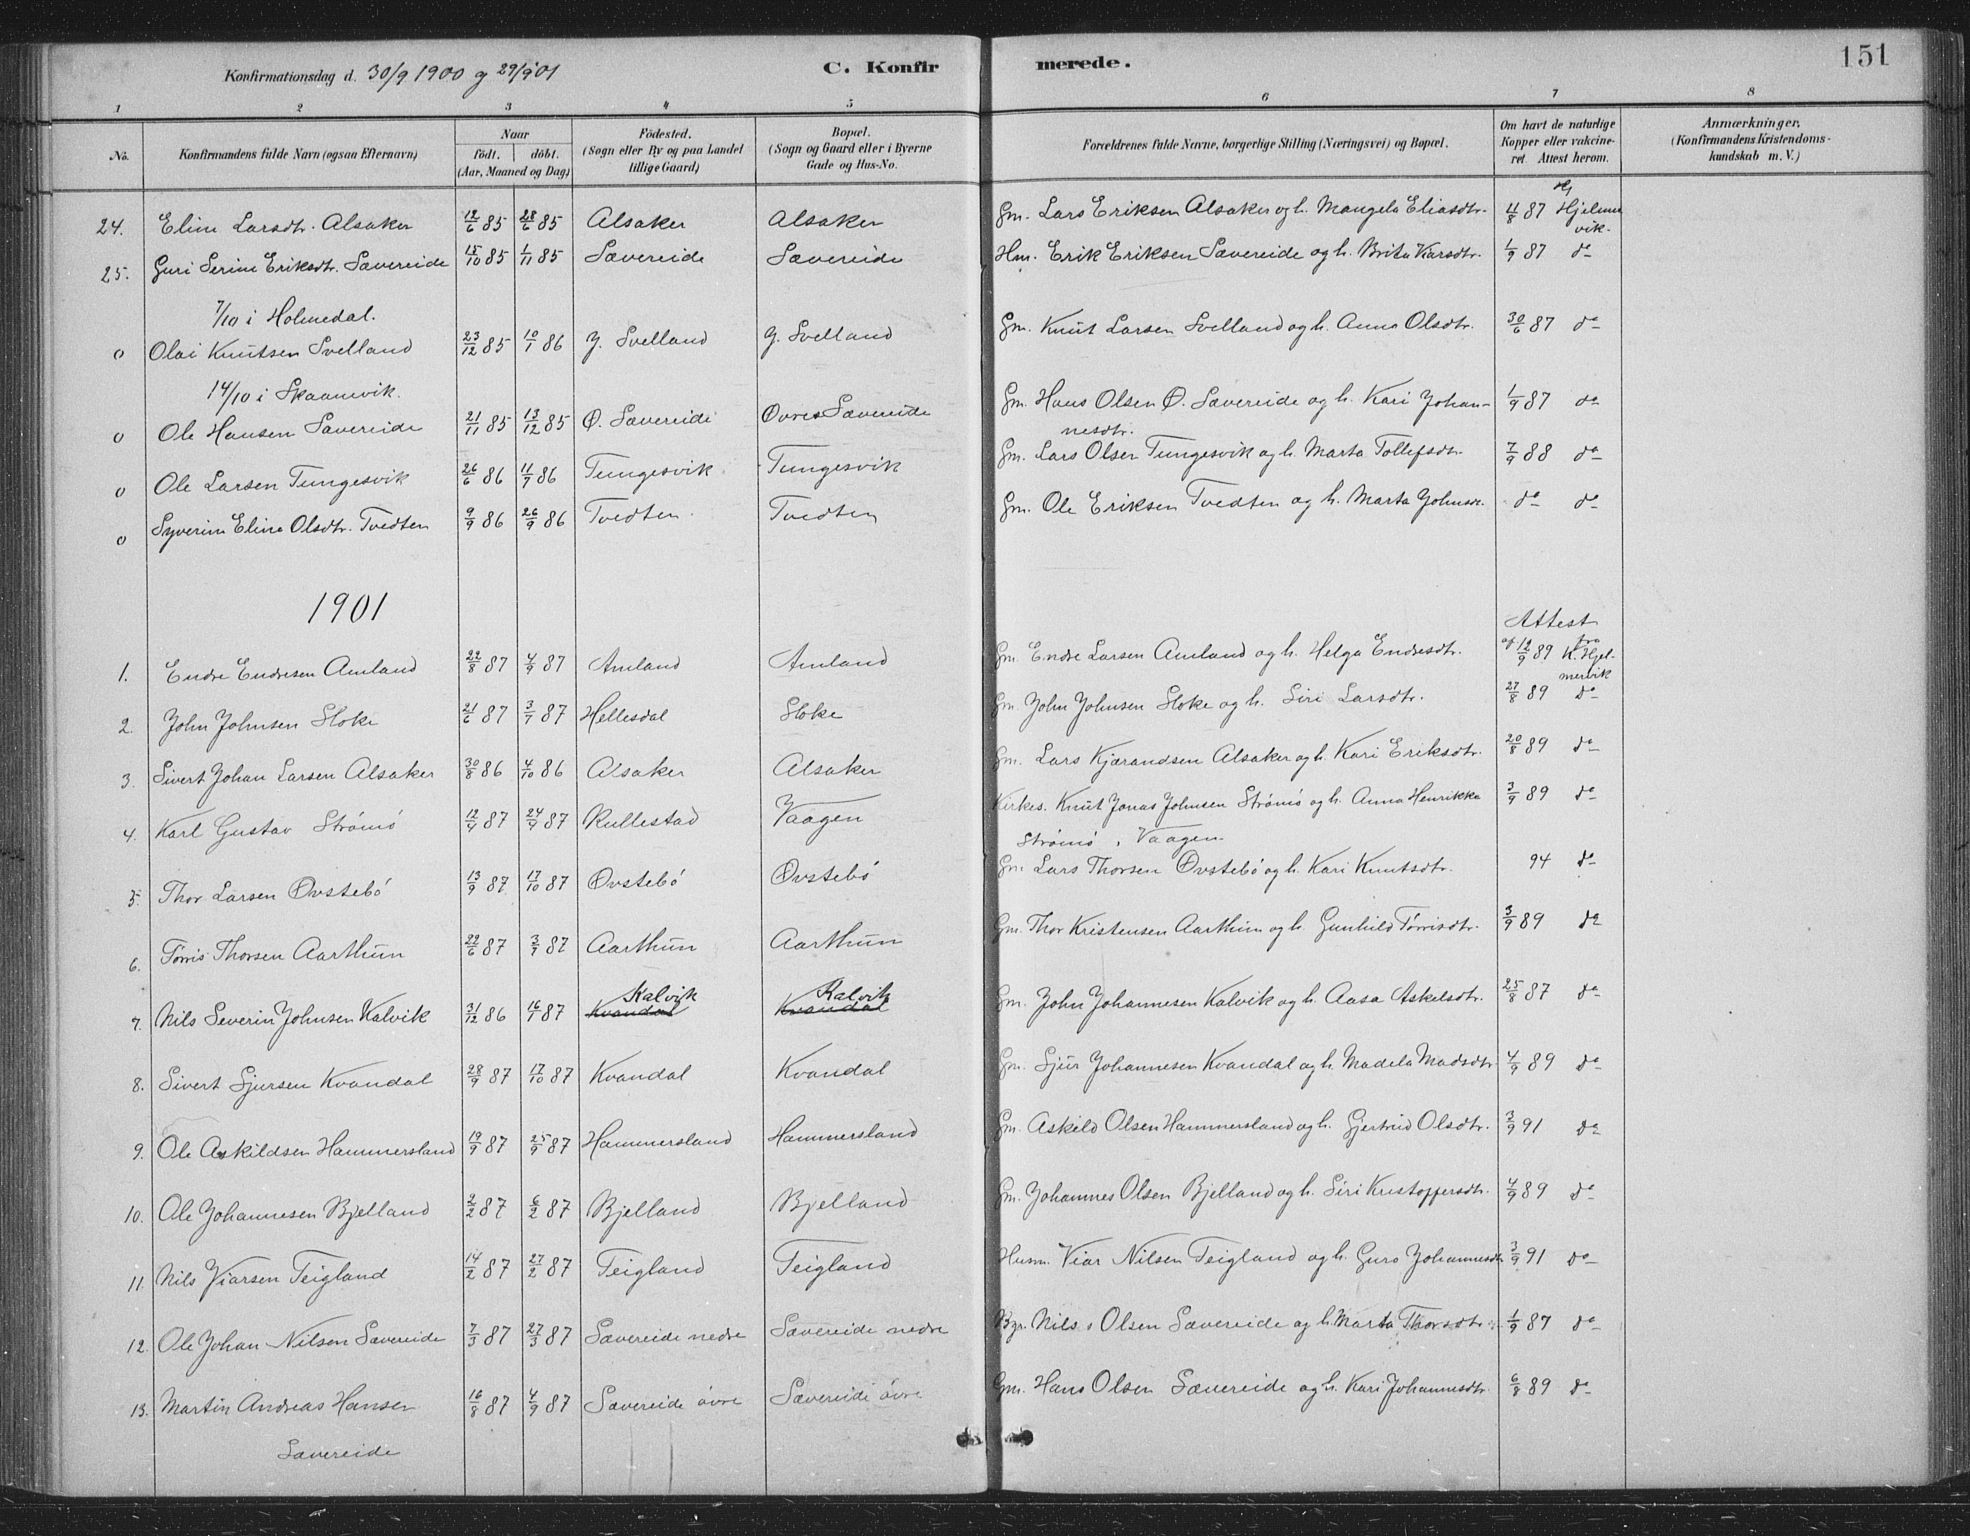 Konfirmationsdag d. 30/9 1900 og 29/9 01 C. Konfirmerede. 151
1 2 3 4 5 6 7 8
No. Konfirmandens fulde Navn (ogsaa Efternavn) Naar födt. döbt. (Aar, Maaned og Dag) Födested. (Sogn eller By og paa Landet tillige Gaard) Bopæl. (Sogn og Gaard eller i Byerne Gade og Hus-No. Forældrenes fulde Navne, borgerlige Stilling (Næringsvei) og Bopæl. Om havt de naturlige Kopper eller vakcineret Attest herom. Anmærkninger, (Konfirmandens Kristendomskundskab m. V.)
24. Eline Larsdtr. Alsaker 12/6 85 28/6 85 Alsaker Alsaker Gm. Lars Eriksen Alsaker og h. Mangela Eliasdtr. 11/8 87 Hjelmervik
25. Guri Serine Eriksdtr. Sævereide 15/10 85 1/11 85 Sævereide Sævereide Hm. Erik Eriksen Sævereide og h. Brita Viarsdtr. 1/9 87 do
7/10 i Holmedal.
0 Olai Knutsen Svelland 23/12 85 10/1 86 Y. Svelland Y. Svelland Gm. Knut Larsen Svelland og h. Anna Olsdtr. 30/6 87 do
14/10 i Skaanevik.
0 Ole Hansen Sævereide 21/11 85 13/12 85 Ø. Sævereide Øvre Sævereide Gm. Hans Olsen Ø. Sævereide og h. Kari Johannesdtr. 1/9 87 do
0 Ole Larsen Tungesvik 26/6 86 11/7 86 Tungesvik Tungesvik Gm. Lars Olsen Tungesvik og h. Marta Tollefsdtr. 7/9 88 do
0 Syverine Eline Olsdtr. Tvedten 9/9 86 26/9 86 Tvedten Tvedten Gm. Ole Eriksen Tvedten og h. Marta Johnsdr. do do
1901 Attest
1. Endre Endresen Amland 22/8 87 4/9 87 Amland Amland Gm. Endre Larsen Amland og h. Helga Endresdtr. af 12/9 89 fra K. Hjelmervik
2. John Johnsen Sloke 21/6 87 3/7 87 Hellesdal Sloke Gm. John Johnsen Sloke og h. Siri Larsdtr. 27/8 89 do
3. Sivert Johan Larsen Alsaker 30/8 86 4/10 86 Alsaker Alsaker Gm. Lars Kjærandsen Alsaker og h. Kari Eriksdtr. 20/8 89 do
4. Karl Gustav Strömö 12/4 87 24/4 87 Rullestad Vaagen Kirkes. Knut Jonas Johnsen Strömö og h. Anna Henrikka Strömö, Vaagen 3/9 89 do
5. Thor Larsen Øvstebö 13/9 87 17/10 87 Øvstebö Øvstebö Gm. Lars Thorsen Øvstebö og h. Kari Knutsdtr. 94 do
6. Törris Thorsen Aarthun 22/6 87 3/7 87 Aarthun Aarthun Gm. Thor Kristensen Aarthun og h. Gunhild Törrisdtr. 3/9 89 do
7. Nils Severin Johnsen Kalvik 31/12 86 16/1 87 Kvandal Kalvik Kvandal Kalvik Gm. John Johannesen Kalvik og h. Aasa Askelsdtr. 25/8 87 do
8. Sivert Sjursen Kvandal 28/9 87 17/10 87 Kvandal Kvandal Gm. Sjur Johannesen Kvandal og h. Madela Madsdtr. 4/9 89 do
9. Ole Askildsen Hammersland 19/9 87 25/9 87 Hammersland Hammersland Gm. Askild Olsen Hammersland og h. Gjertrud Olsdtr. 3/9 91 do
10. Ole Johannesen Bjelland 2/2 87 6/2 87 Bjelland Bjelland Gm. Johannes Olsen Bjelland og h. Siri Kristoffersdtr. 4/9 89 do
11. Nils Viarsen Teigland 14/2 87 27/2 87 Teigland Teigland Husm. Viar Nilsen Teigland og h. Guro Johannesdtr 3/9 91 do
12. Ole Johan Nilsen Sævereide 7/3 87 27/3 87 Sævereide nedre Sævereide nedre Bgr. Nils Olsen Sævereide og h. Marta Thorsdtr. 1/9 87 do
13. Martin Andreas Hansen Sævereide 16/8 87 4/9 87 Sævereide övre Sævereide övre Gm. Hans Olsen Sævereide og h. Kari Johannesdtr. 6/8 89 do